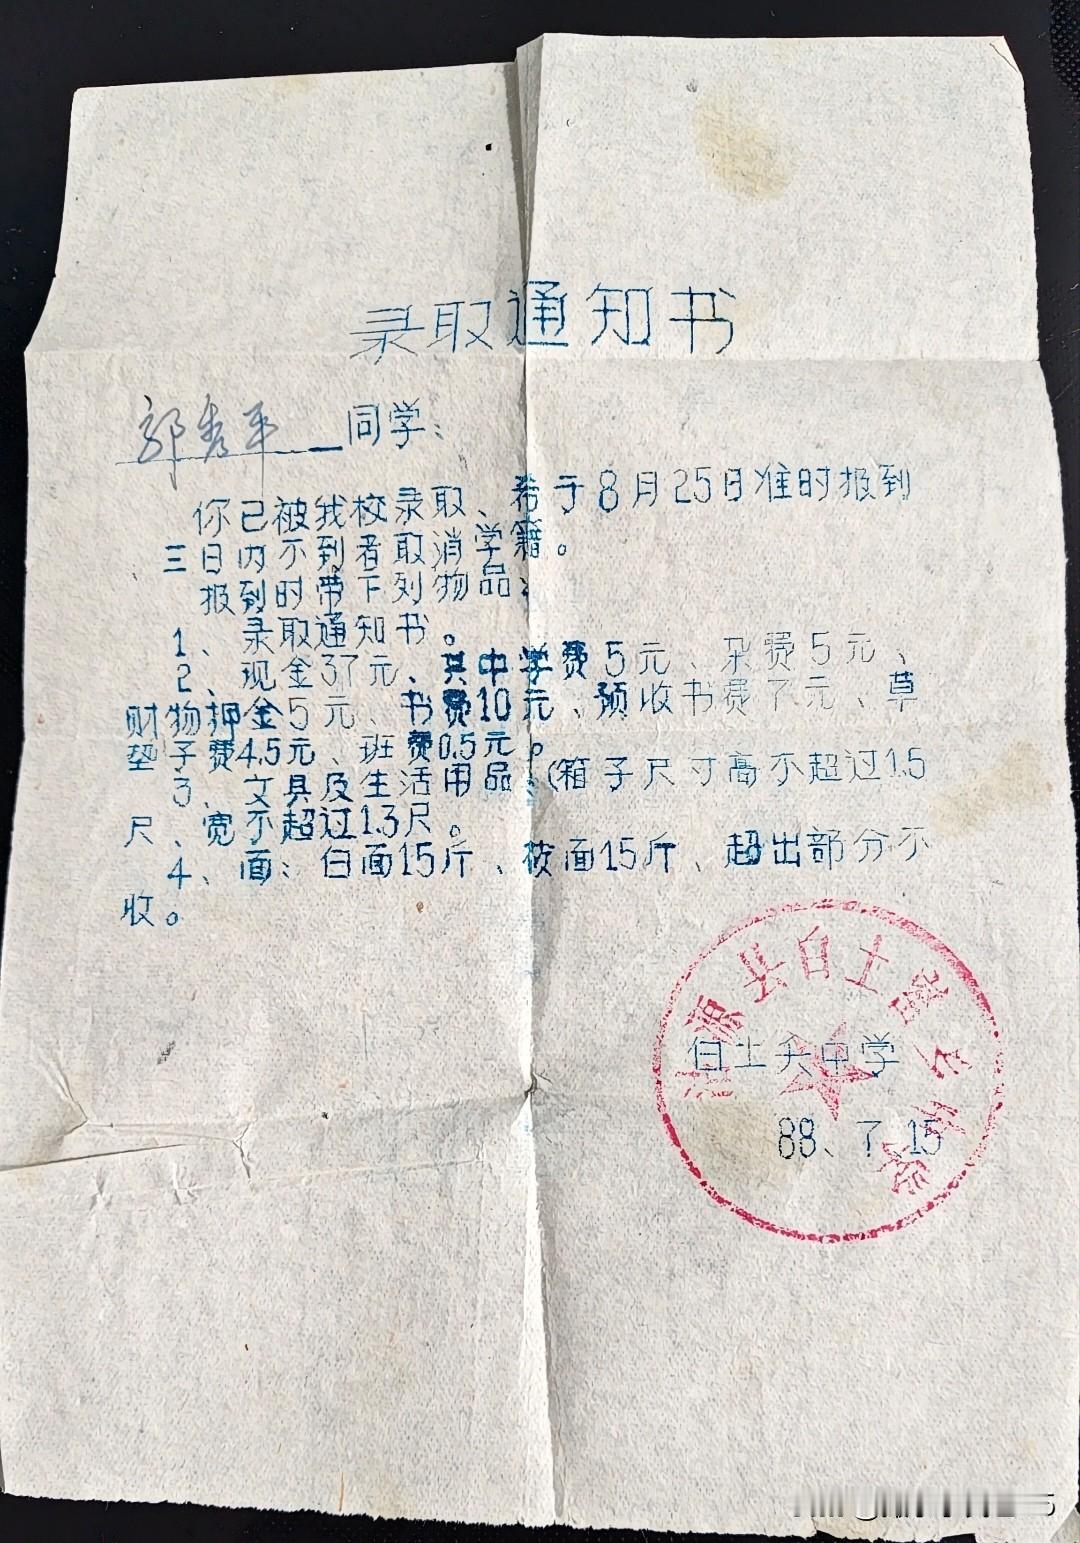 录取通知书
郭秀平同学：
你已被我校录取、希于8月25日准时报到
三日内不到者取消学籍。
报到时带下列物品：
1、录取通知书。
2、现金37元、其中学费5元、杂费5元、
财物押金5元、书费10元、预收书费7元、草
垫子费4.5元、班费0.5元。
3、文具及生活用品：（箱子尺寸高不超过1.5
尺、宽不超过1.3尺。
4、面：白面15斤、莜面15斤、超出部分不
收。
县白土
白土夭中学
88、7、15